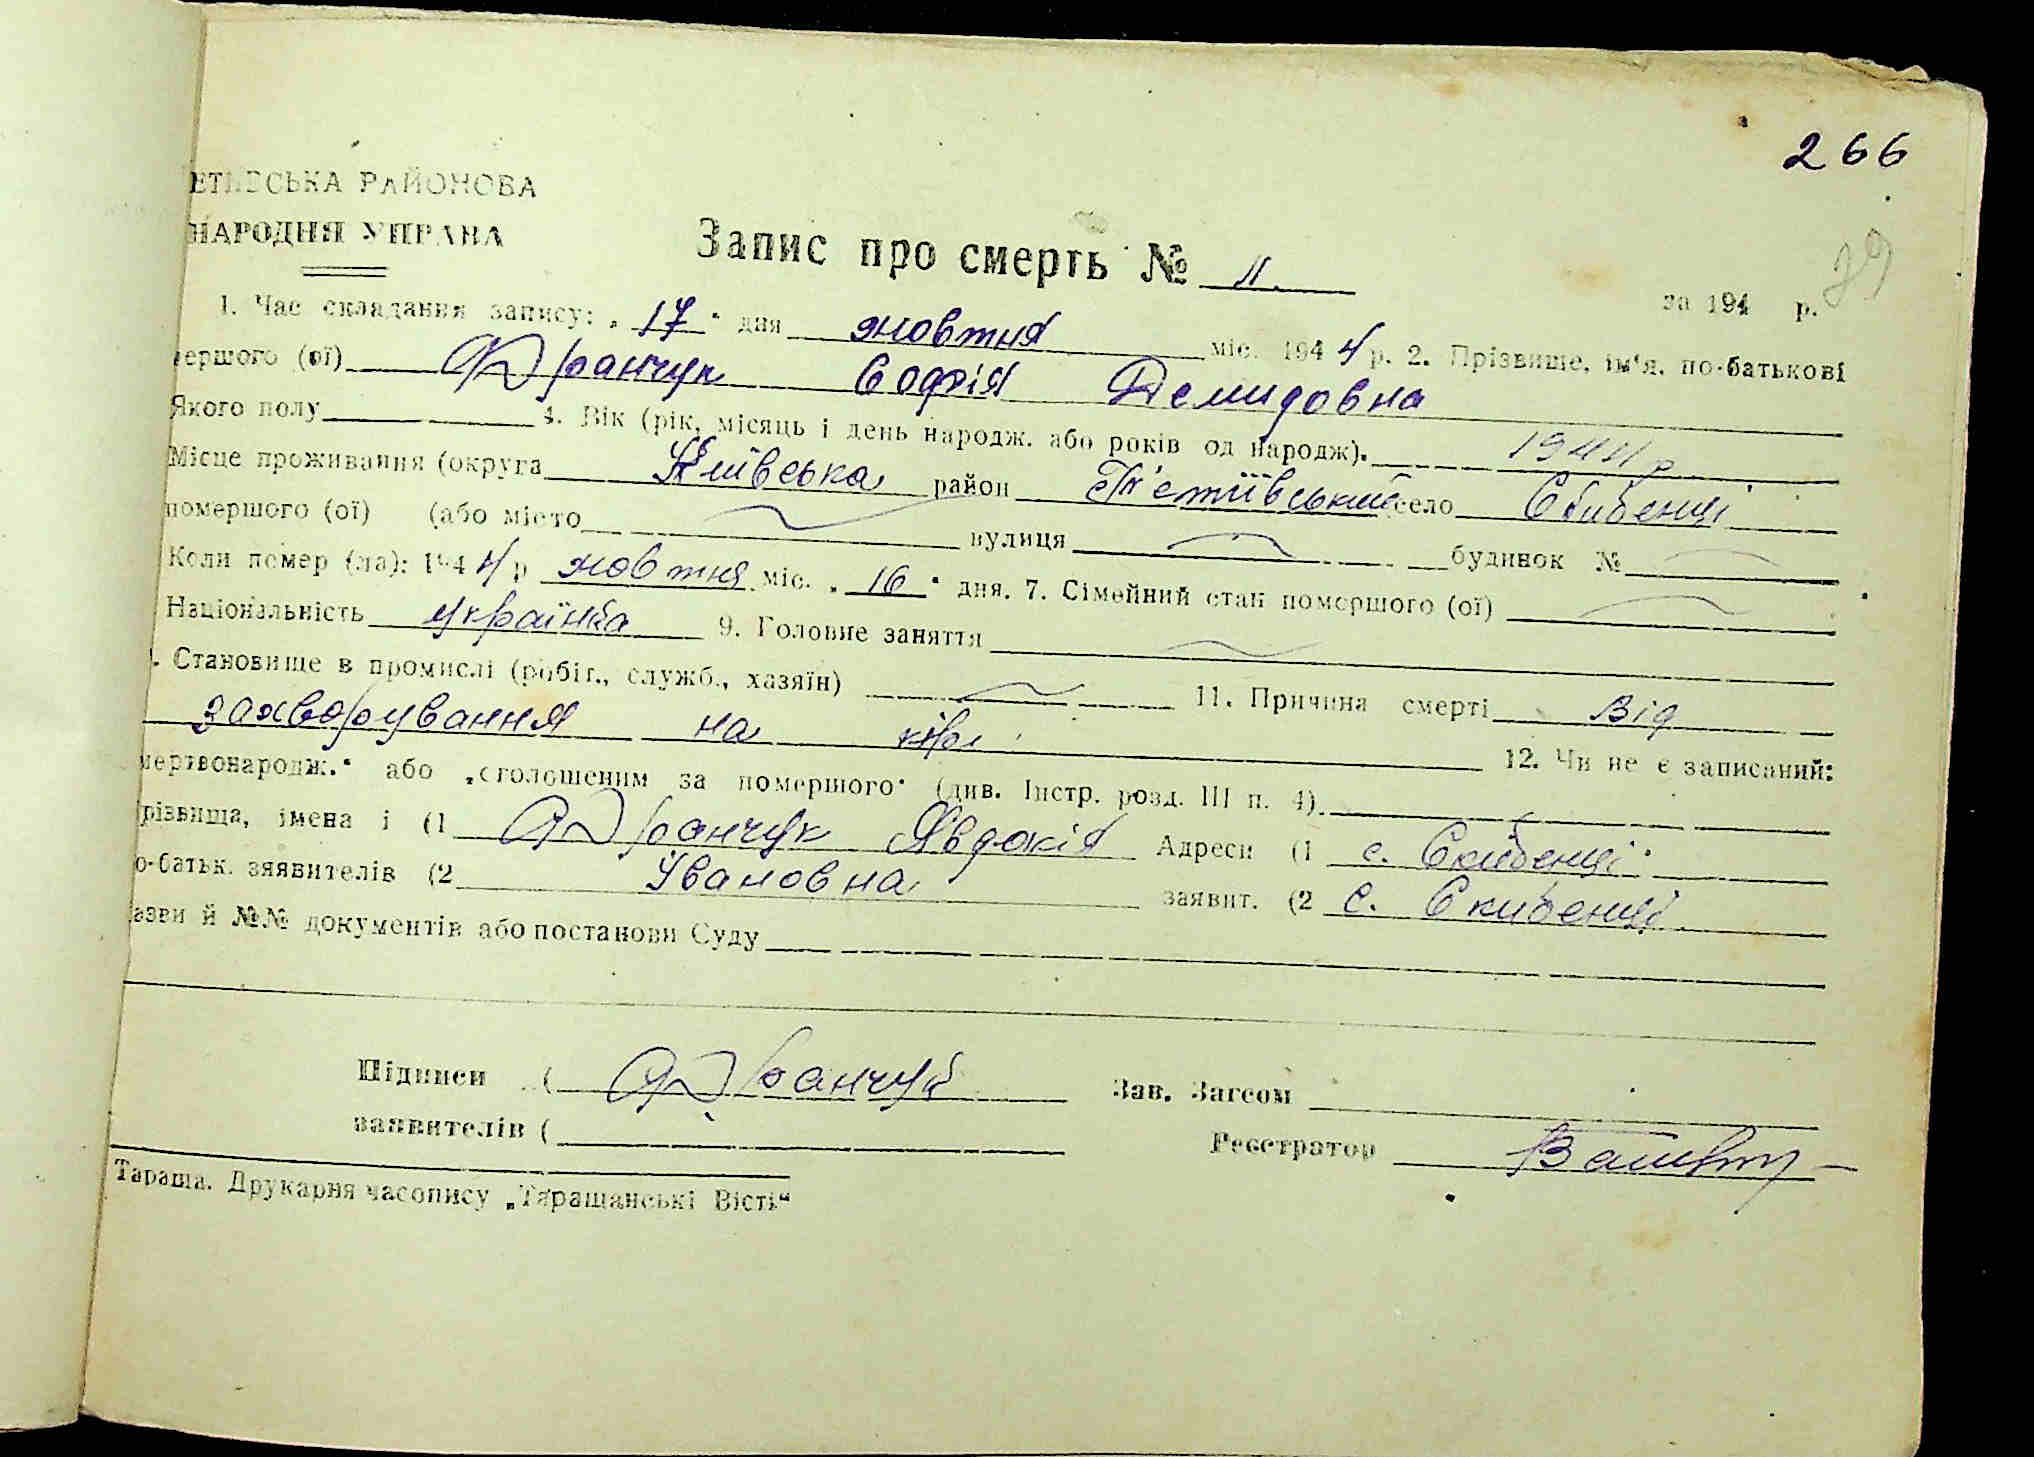 266
39
ЕТІЇВСЬКА РАЙОНОВА
НАРОДНЯ УПРАВА
Запис про смерть № 11.
за 194 р.
1. Час складання запису: „17“ дня жовтня міс. 1944 р. 2. Прізвище, ім'я, по-батькові
мершого (ої) Франчук Софія Демидовна
Якого полу 4. Вік (рік, місяць і день народж. або років од народж). 1944 р
Місце проживання (округа Київська район Т'етіївський село Скибенці
помершого (ої) (або місто вулиця будинок №
Коли помер (ла): 1944 р жовтня міс. „16“ дня. 7. Сімейний стан помершого (ої)
Національність українка 9. Головне заняття
. Становище в промислі (робіт., служб., хазяїн) 11. Причина смерті Від
захворування на кір. 12. Чи не є записаний:
мертвонародж.“ або „оголошеним за помершого“ (див. Інстр. розд. III п. 4).
різвища, імена і (1 Франчук Явдокія Адреси (1 с. Скибенці.
о-батьк. заявителів (2 Івановна заявит. (2 с. Скибенці.
азви й №№ документів або постанови Суду
Підписи ( Франчук Зав. Загсом
заявителів ( Реєстратор
Тараща. Друкарня часопису „Таращанські Вісті“